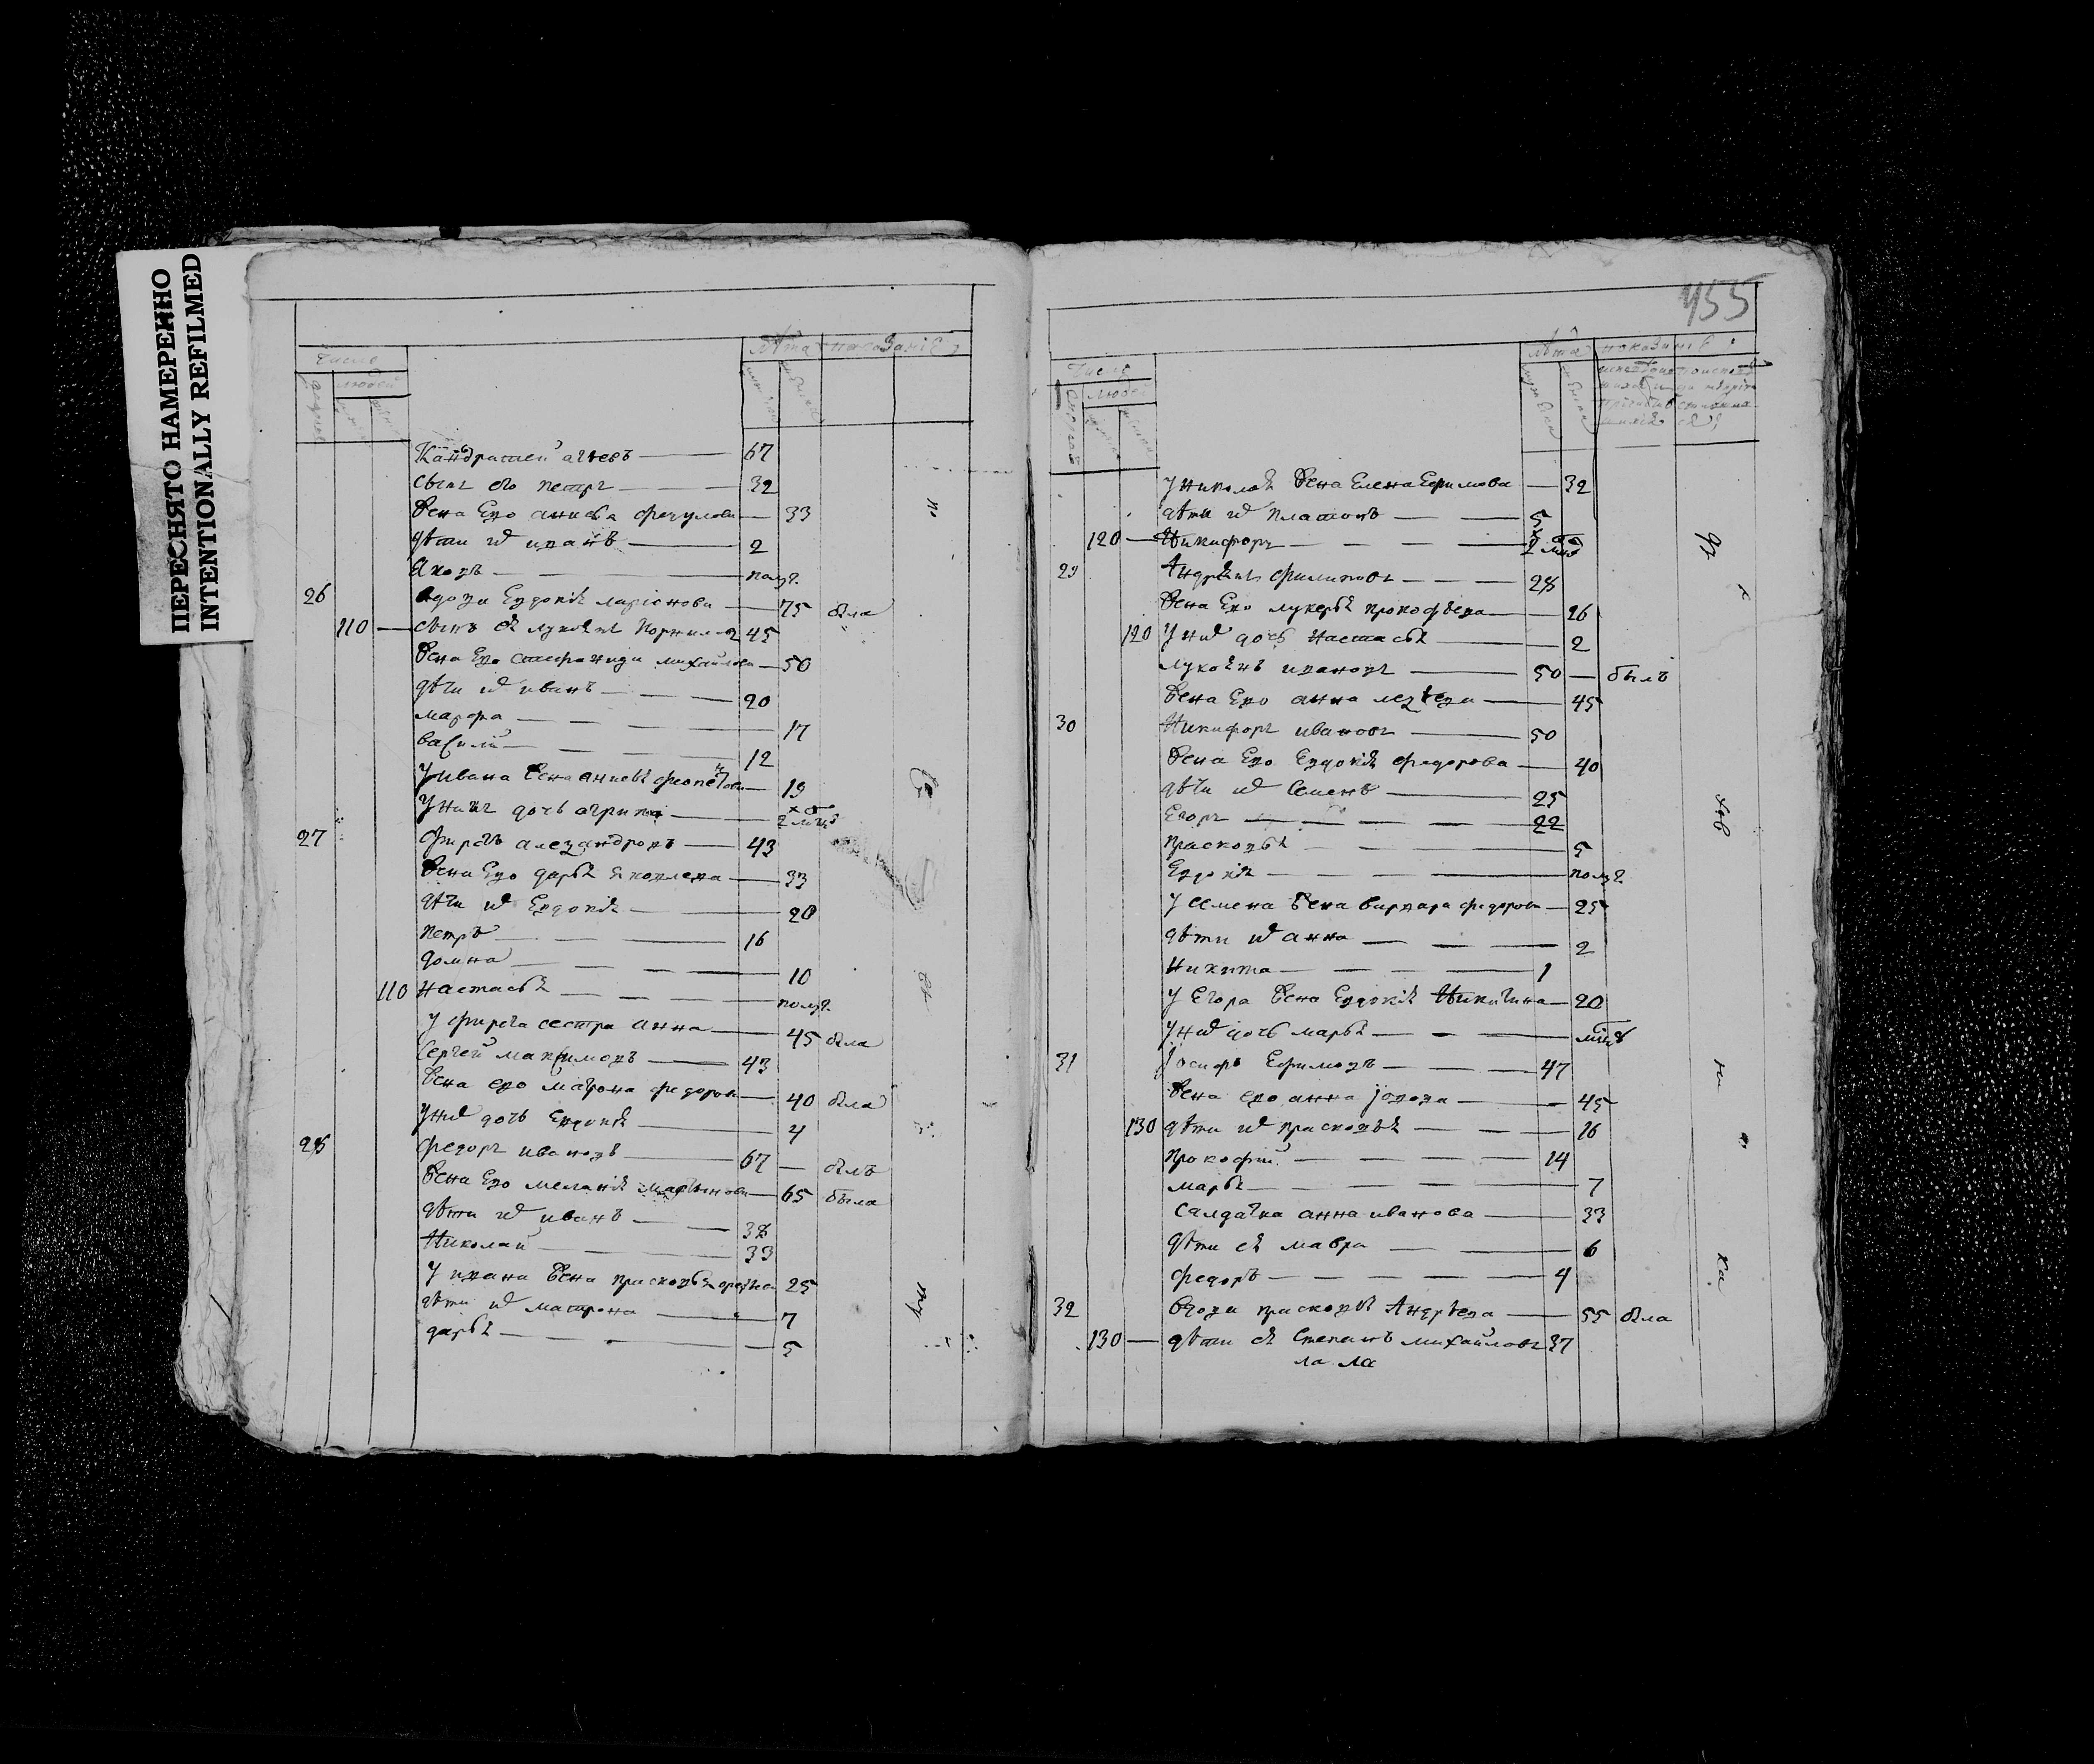 ПЕРЕСНЯТО НАМЕРЕННО
INTENTIONALLY REFILMED
Число
людей
лѣта показаніе
Кандратей агѣевъ 67
сынъ его петръ 32
Жена Ево анисья 33
дѣти их иванъ 2
Яковъ полуг.
26 вдова Евдокия ларіонова 75 была
110 сынъ ея лукиянъ 45
Жена Ево степанида михайлова 50
дѣти их иванъ 20
марфа 17
василий 12
У ивана жена анисья 19
У них дочь агрипа 2 мца
27 Фирсъ александровъ 43
Жена Ево дарья яковлева 33
дѣти их Евдокия 20
петръ 16
домна 10
110 настасья полуг.
У фирса сестра анна 45 была
Сергей максимовъ 43
Жена ево матрона федорова 40 была
У них дочь Евдокия 4
28 федоръ ивановъ 67 былъ
Жена Ево мелания мартинова 65 была
дѣти их иванъ 38
Николай 33
У ивана жена прасковья 25
дѣти их матрона 7
дарья 5
455
Число
людей
лѣта показаніе
У николая жена Елена Ефимова 32
дѣти их платонъ 5
120 Никифоръ 2 мца
29 Андреянъ филиповъ 28
Жена Ево лукерья прокофьева 26
120 У них дочь настасья 2
лукиянъ ивановъ 50 былъ
Жена Ево анна 45
30 Никифоръ ивановъ 50
Жена Ево Евдокия федорова 40
дѣти их Семенъ 25
Егоръ 22
Прасковья 5
Евдокия полуг.
У Семена жена варвара федорова 25
дѣти их анна 2
Никита 1
У Егора жена Евдокия Никитина 20
У них дочь марья мцъ
31 Іосифъ Ефимовъ 47
Жена ево анна 45
130 дѣти их прасковья 16
прокофий 14
марья 7
Салдатка анна иванова 33
дѣти ея мавра 6
федоръ 4
32 Вдова прасковья Андрѣева 55 была
130 дѣти ея Степанъ михайловъ 37